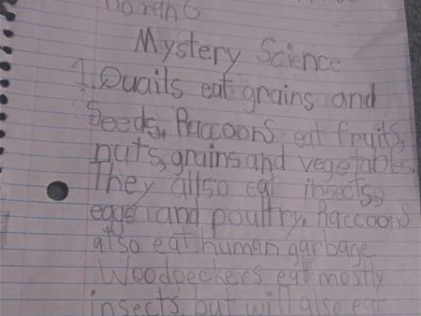 Mystery Science
1. Quails eat grains and
Seeds. Raccoons eat fruits,
nuts, grains and vegetables.
They allso eat insects,
eggs and poultry. Raccoons
also eat human garbage
Woodpeckers eat mostly
insects but will also eat